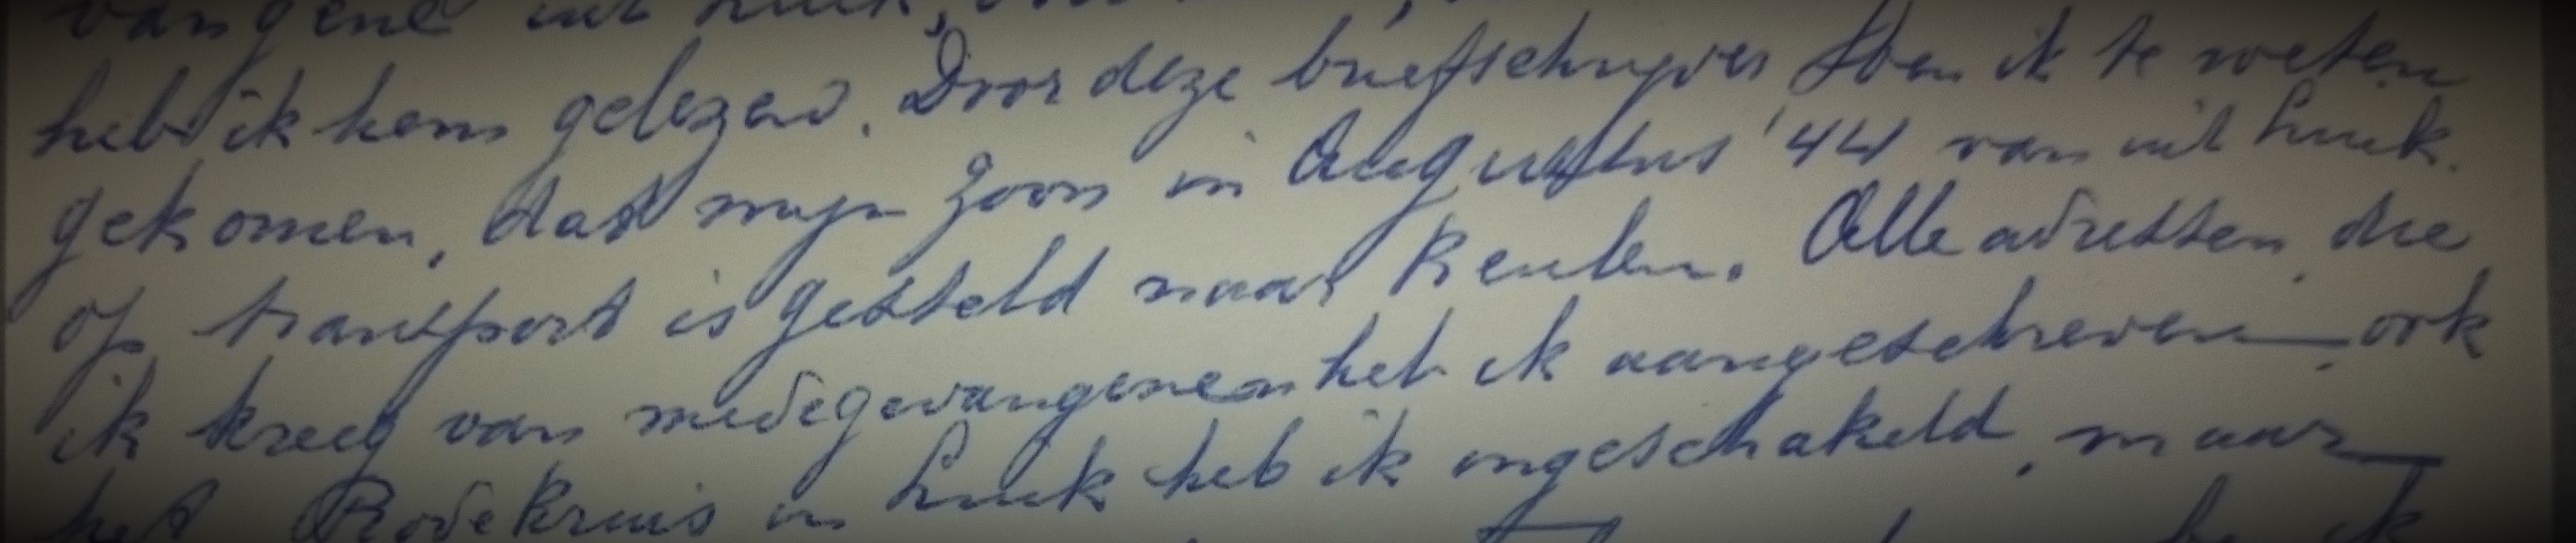 vangene uit Luik,
heb ik hem gelezen. Door deze briefschrijver ben ik te weten
gekomen, dat mijn zoon in Augustus '44 van uit Luik
op transport is gesteld naar Keulen. Alle adressen, die
ik kreeg van medegevangenen heb ik aangeschreven, ook
het Rode Kruis in Luik heb ik ingeschakeld, maar
ik